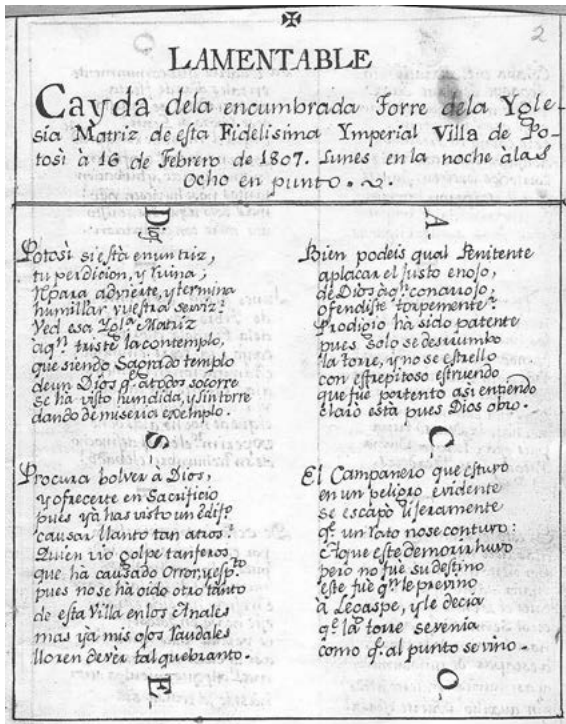 2
LAMENTABLE
Cayda dela encumbrada Torre dela Ygle-
sia Matriz de esta Fidelisima Ymperial Villa de Po-
tosì à 16 de Febrero de 1807. Lunes en la noche àlas
Ocho en punto.
Dios
Potosì si està en un triz,
tu perdicion, y ruina;
para advierte, y termina
humillar vuestra serviz:
Ved esa Ygla. Matriz
aqn. triste la contemplo,
que siendo Sagrado templo
deun Dios q. atodos socorre
se ha visto hundida, y sin torre
dando de miseria exemplo.
S
Procura bolver a Dios,
y ofrecerte en Sacrificio
pues yà has visto un edifo.
causar llanto tan atros:
Quien vio golpe tanferos
que hà causado Orror, y espto
pues nose hà oido otro tanto
de esta Villa enlos Anales
mas yà mis ojos raudales
lloren dever tal quebranto.
E
A
Bien podeis qual Penitente
aplacar el justo enojo,
de Dios àqn. con arrojo,
ofendiste torpemente.
Prodigio hà sido patente
pues solo se desrrumbo
la torre, y no se estrello
con estrepitoso estruendo
que fue portento asi entiendo
claro està pues Dios obro.
C
El Campanero que estuvo
en un peligro evidente
se escapò lijeramente
q. un rato nose contuvo:
aque este demorir huvo
pero no fue su destino
este fue qn. le previno
à Legaspe, y le decia
q. la torre sevenia
como q. al punto se vino.
O